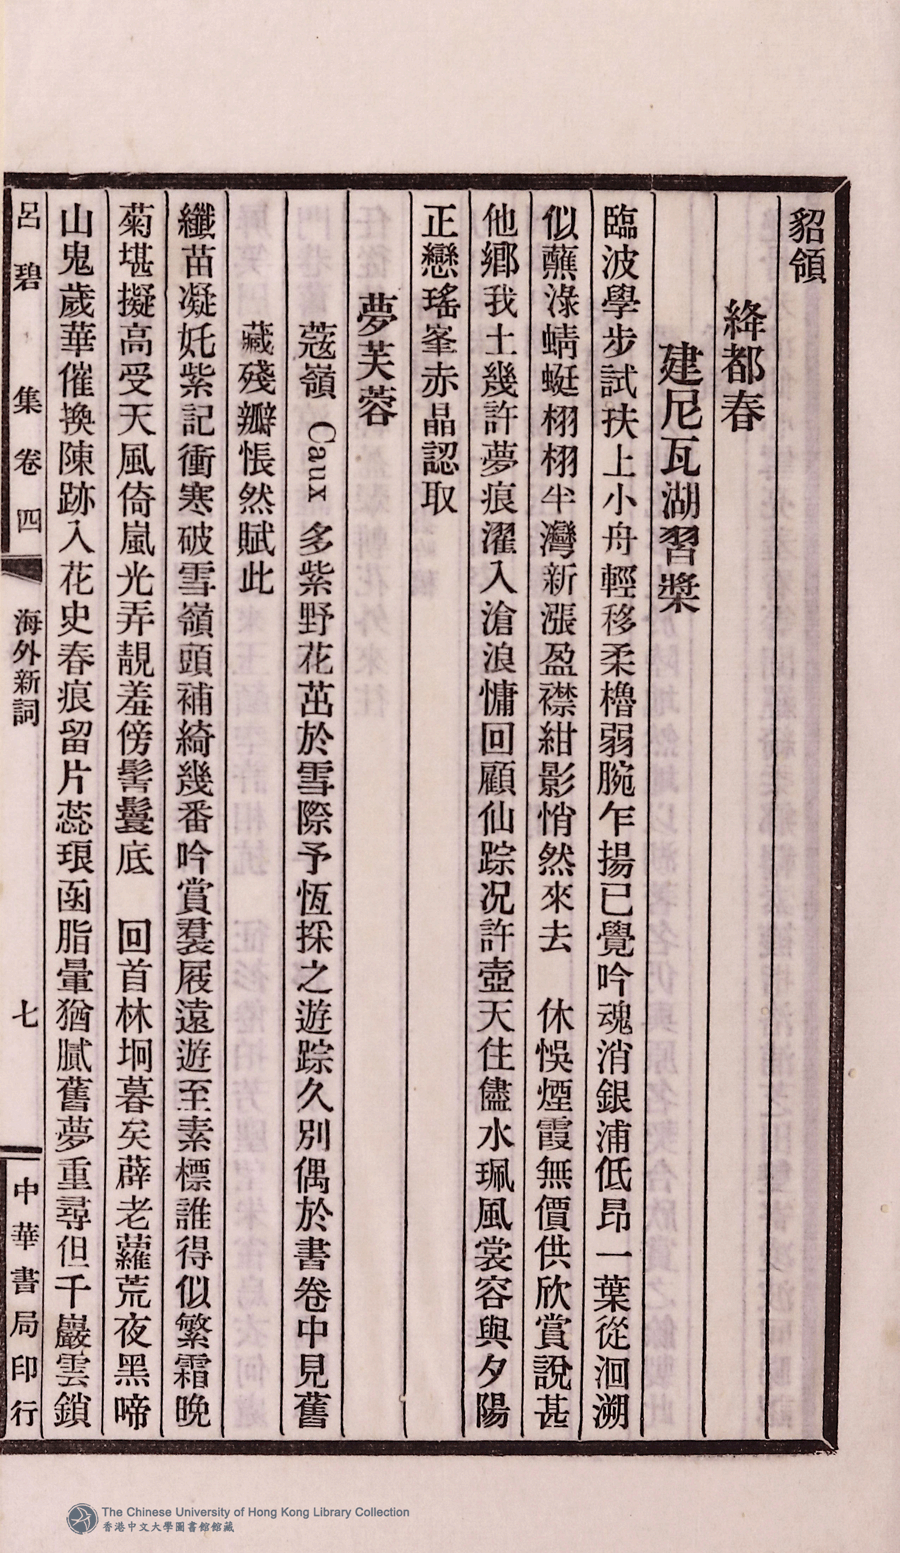 貂領
絳都春
建尼瓦湖習槳
臨波學步試扶上小舟輕移柔櫓弱腕乍揚已覺吟魂消銀浦低昂一葉從洄溯
似蘸淥蜻蜓栩栩半灣新漲盈襟紺影悄然來去　休悞煙霞無價供欣賞說甚
他鄉我土幾許夢痕濯入滄浪慵回顧仙踪况許壺天住儘水珮風裳容與夕陽
正戀瑤峯赤晶認取
夢芙蓉
蔻嶺 Caux 多紫野花茁於雪際予恆採之遊踪久別偶於書卷中見舊
藏殘瓣悵然賦此
纖苗凝妊紫記衝寒破雪嶺頭補綺幾番吟賞裠屐遠遊至素標誰得似繁霜晚
菊堪擬高受天風倚嵐光弄靚羞傍髻鬟底　回首林坰暮矣薜老蘿荒夜黑啼
山鬼歲華催換陳跡入花史春痕留片蕊琅函脂暈猶膩舊夢重尋但千巖雲鎖
呂碧　集卷四　海外新詞　七　中華書局印行
The Chinese University of Hong Kong Library Collection
香港中文大學圖書館館藏